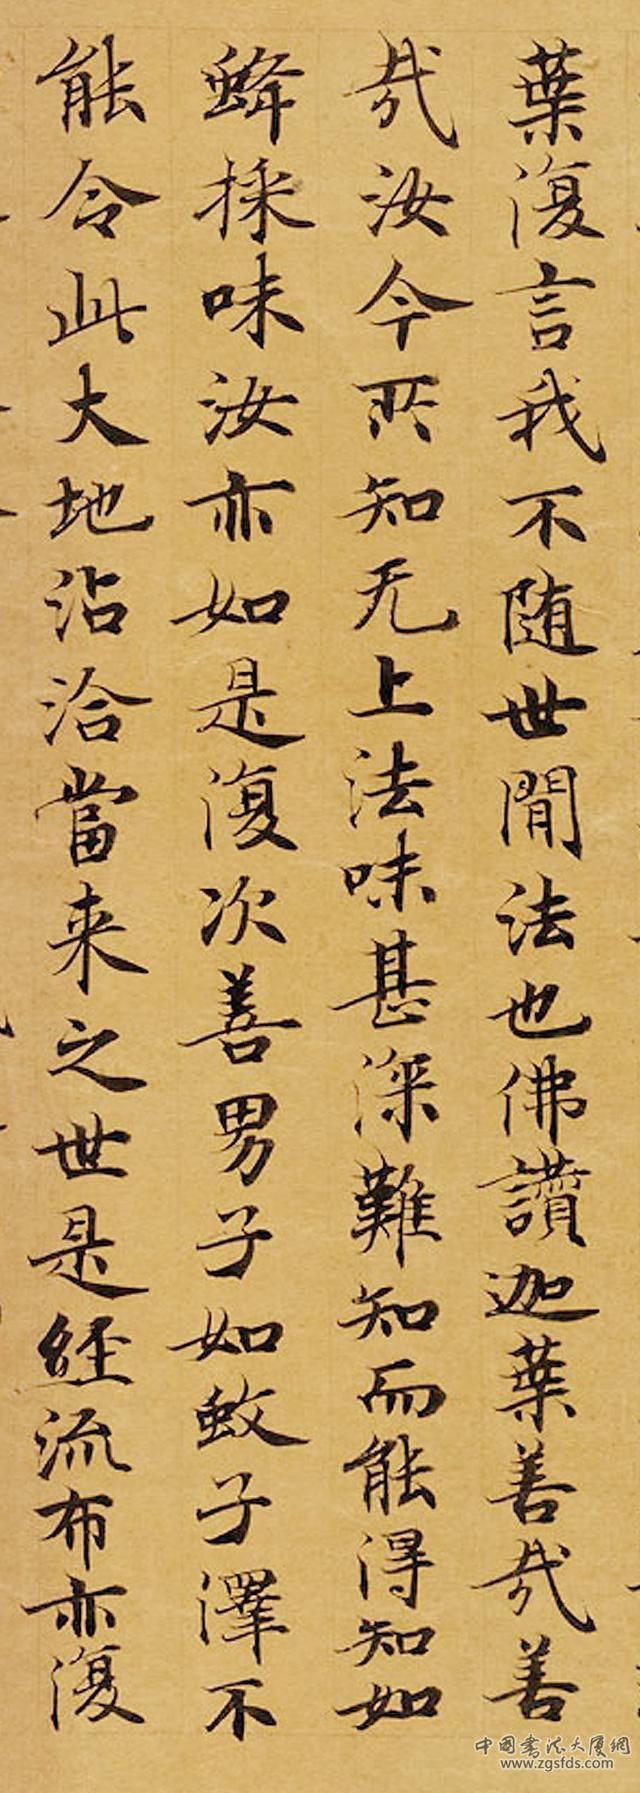 葉復言我不随世間法也佛讚迦葉善哉善
哉汝今所知无上法味甚深難知而能得知如
蜂採味汝亦如是復次善男子如蚊子澤不
能令此大地沾洽當来之世是経流布亦復
中国书法大厦网
www.zgsfds.com